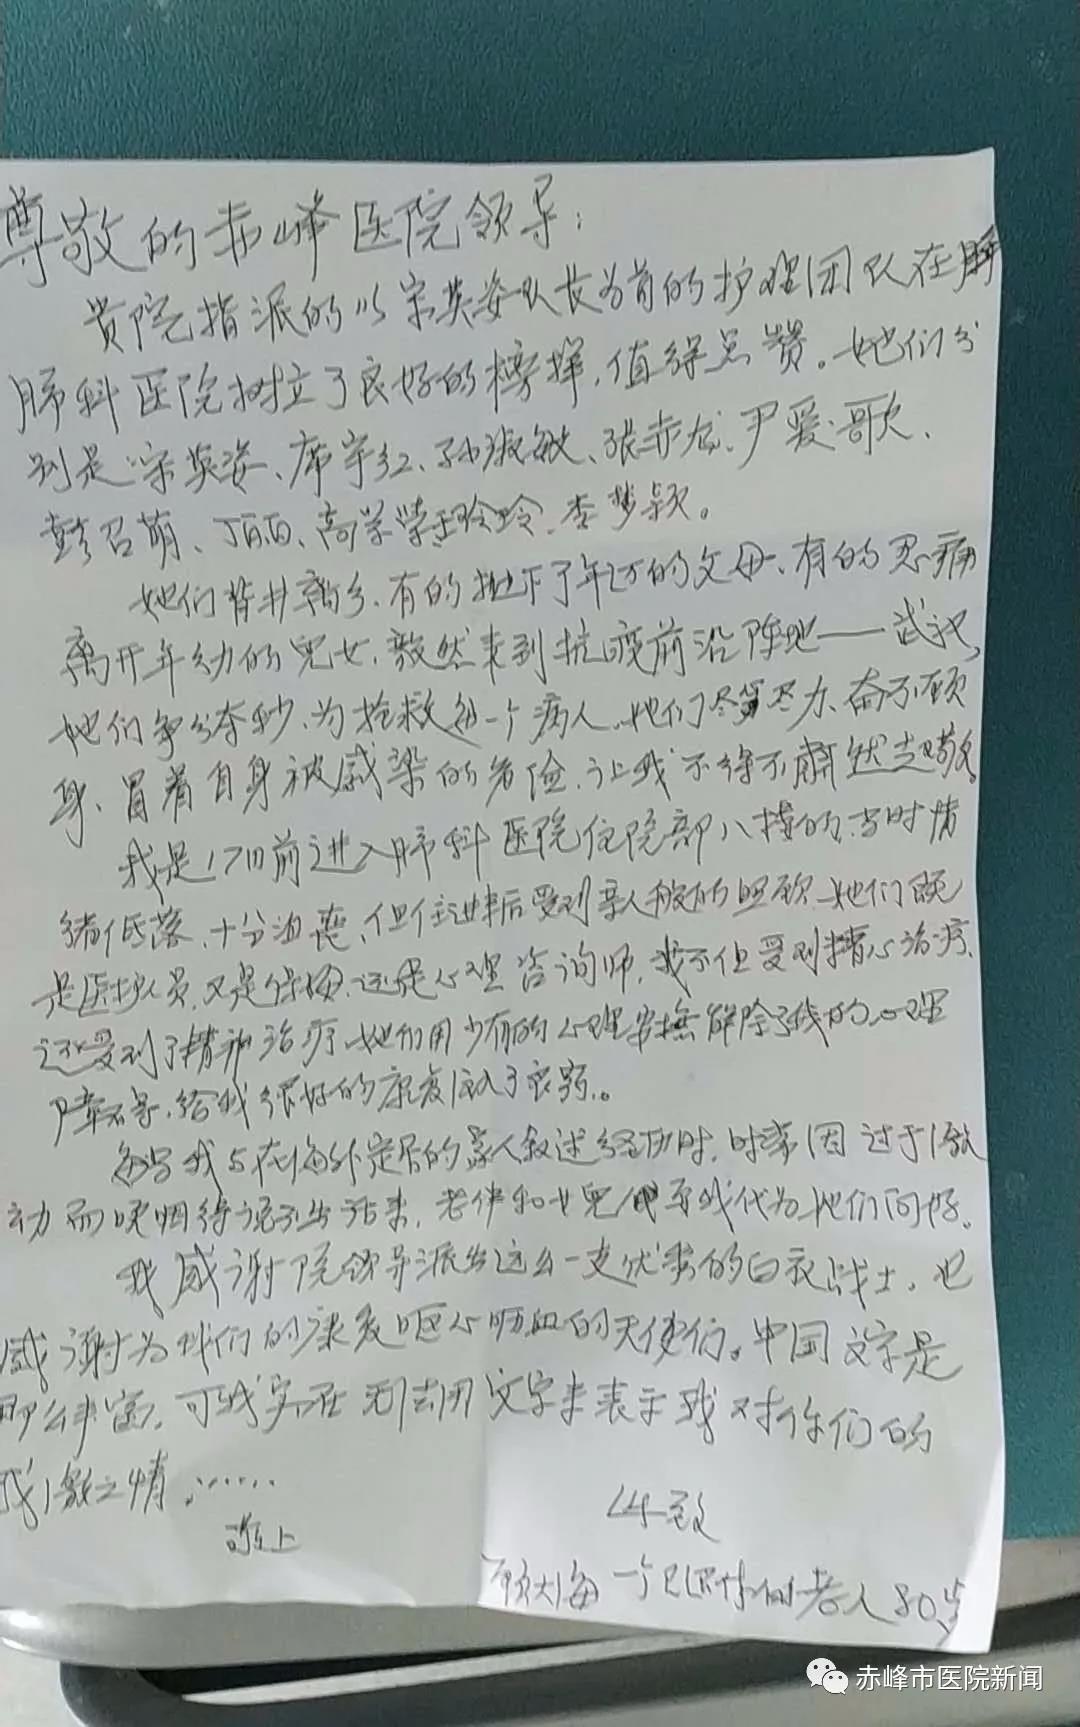 尊敬的赤峰医院领导：
贵院指派的以宋英姿队长为首的护理团队在
肺科医院树立了良好的榜样，值得点赞。她们分
别是宋英姿、席宇红、孙淑敏、张赤龙、尹爱歌、
彭召萌、丁丽丽、高学莹、王玲玲、李梦颖。
她们背井离乡、有的抛下了年迈的父母、有的忍痛
离开年幼的儿女，毅然来到抗疫前沿阵地——武汉，
她们争分夺秒，为抢救每一个病人，她们尽心尽力、奋不顾
身、冒着自身被感染的危险，让我不得不肃然起敬。
我是17日前进入肺科医院住院部八楼的，当时情
绪低落、十分沮丧、但住进来后受到亲人般的照顾，她们既
是医护人员，又是保姆，还是心理咨询师，我不但受到精心治疗，
还受到了精神治疗，她们用少有的心理安抚解除了我的心理
障碍，给我很好的康复
每当我与在海外定居的家人叙述经历时，时常因过于激
动而哽咽得说不出话来，老伴和女儿 我代为她们问好。
我感谢院领导派出这么一支优秀的白衣战士，也
感谢为我们的康复呕心呖血的天使们。中国文字是
那么丰富，可我实在无法用文字来表示我对你们的
感激之情，……
此致
敬上
顾大海 一个已退休的老人80岁
赤峰市医院新闻